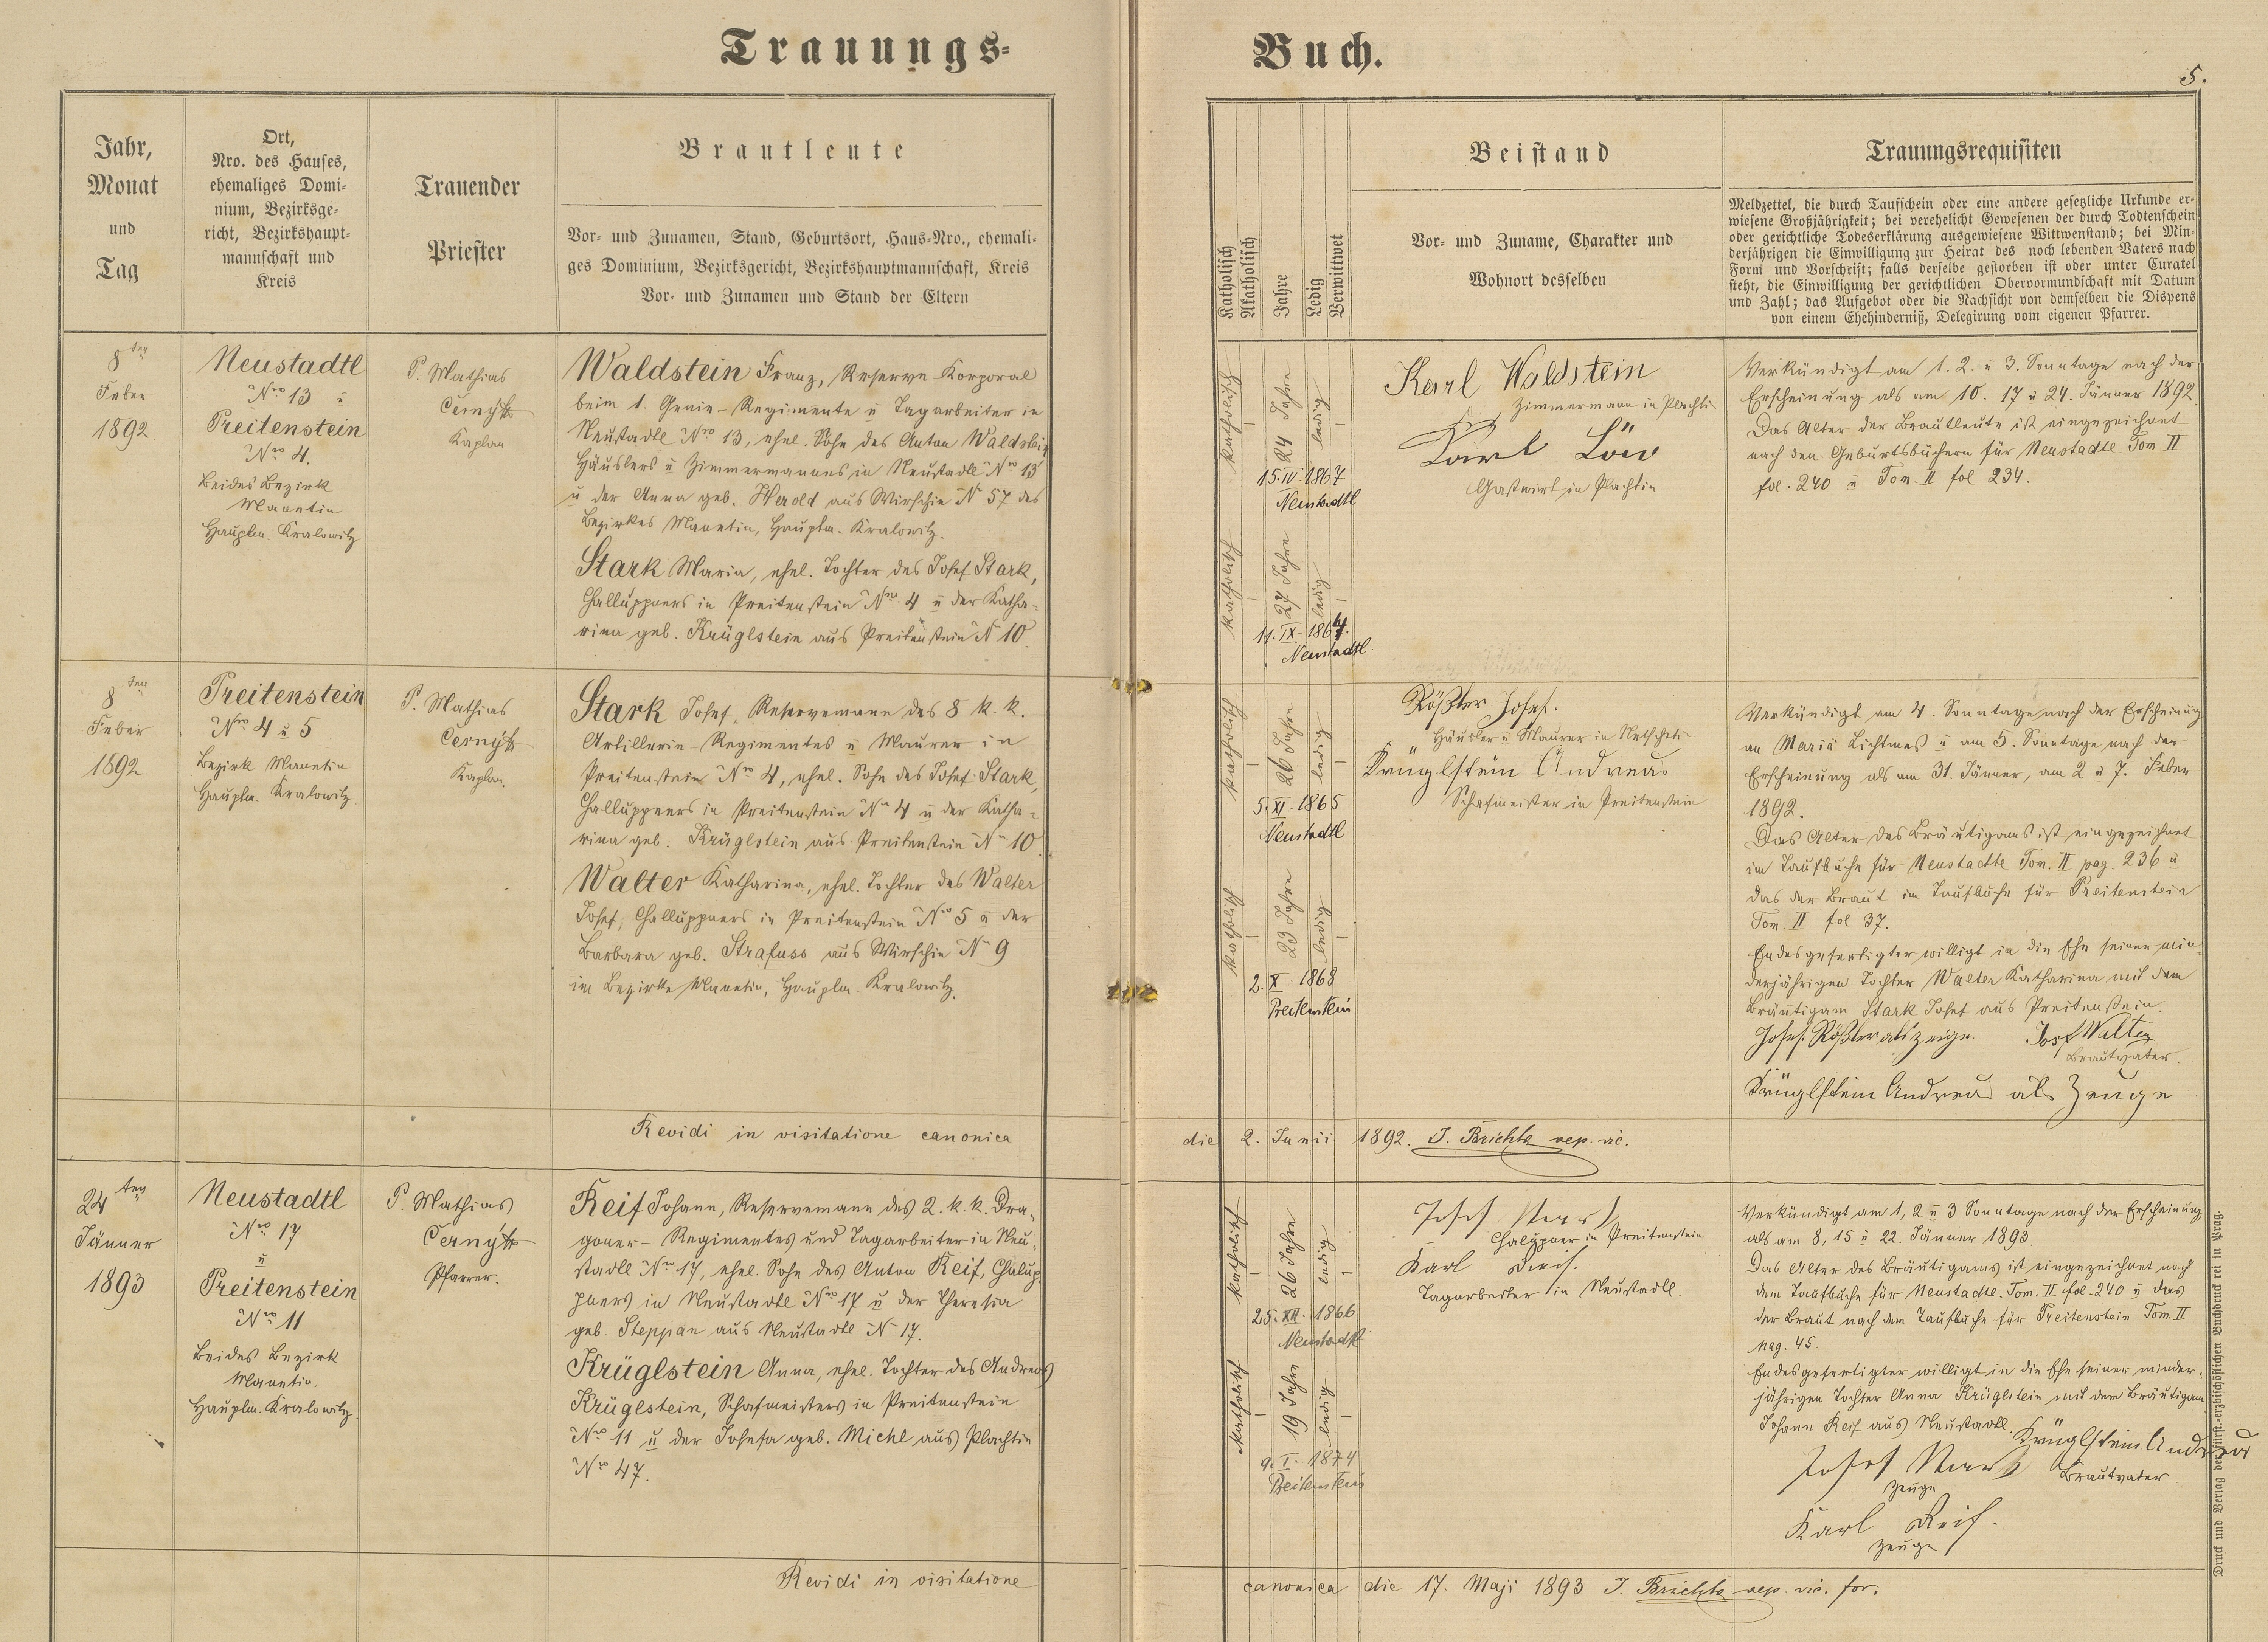 Trauungs-
Buch.
5.
Jahr,
Monat
und
Tag
Ort,
Nro. des Hauses,
ehemaliges Domi-
nium, Bezirksge-
richt, Bezirkshaupt-
mannschaft und
Kreis
Trauender
Priester
Brautleute
Vor- und Zunamen, Stand, Geburtsort, Haus-Nro., ehemali-
ges Dominium, Bezirksgericht, Bezirkshauptmannschaft, Kreis
Vor- und Zunamen und Stand der Eltern
Katholisch
Akatholisch
Jahre
Ledig
Verwittwet
Beistand
Vor- und Zuname, Charakter und
Wohnort desselben
Trauungsrequisiten
Meldzettel, die durch Taufschein oder eine andere gesetzliche Urkunde er-
wiesene Großjährigkeit; bei verehelicht Gewesenen der durch Todtenschein
oder gerichtliche Todeserklärung ausgewiesene Wittwenstand; bei Min-
derjährigen die Einwilligung zur Heirat des noch lebenden Vaters nach
Form und Vorschrift; falls derselbe gestorben ist oder unter Curatel
steht, die Einwilligung der gerichtlichen Obervormundschaft mit Datum
und Zahl; das Aufgebot oder die Nachsicht von demselben die Dispens
von einem Ehehinderniß, Delegirung vom eigenen Pfarrer.
8ten
Feber
1892.
Neustadtl
Nro 13 u
Preitenstein
Nro 4.
Beides Bezirk
Manetin
Hauptm. Kralowitz
P. Mathias
Černý
Kaplan
Waldstein Franz, Reserve-Korporal
beim 1. Genie-Regimente u Tagarbeiter in
Neustadtl Nro 13, ehel. Sohn des Anton Waldstein
Häuslers u Zimmermannes in Neustadtl Nro 13
u der Anna geb. Herold aus Wirschin N 57 des
Bezirkes Manetin, Hauptm. Kralowitz.
Stark Maria, ehel. Tochter des Josef Stark,
Challuppners in Preitenstein Nro 4 u der Katha-
rina geb. Krüglstein aus Preitenstein N 10.
katholisch
24 Jahre
ledig
15. IV. 1867
Neustadtl
katholisch
27 Jahre
ledig
11. IX. 1864.
Neustadtl
Karl Waldstein
Zimmermann in Plachtin
Karl Löw
Gastwirt in Plachtin
Verkündigt am 1. 2. u 3. Sonntage nach der
Erscheinung als am 10. 17 u 24. Jänner 1892.
Das Alter der Brautleute ist eingezeichnet
nach den Geburtsbüchern für Neustadtl Tom II
fol. 240 u Tom. II fol 234.
8ten
Feber
1892
Preitenstein
Nro 4 u 5
Bezirk Manetin
Hauptm. Kralowitz
P. Mathias
Černý
Kaplan.
Stark Josef, Reservemann des 8 k. k.
Artillerie-Regimentes u Maurer in
Preitenstein Nro 4, ehel. Sohn des Josef Stark,
Challuppners in Preitenstein Nro 4 u der Katha-
rina geb. Krüglstein aus Preitenstein Nro 10.
Walter Katharina, ehel. Tochter des Walter
Josef, Challuppners in Preitenstein Nro 5 u der
Barbara geb. Strafuss aus Wirschin Nro 9
im Bezirke Manetin, Hauptm. Kralowitz.
katholisch
26 Jahre
ledig
5. XI. 1865
Neustadtl
katholisch
23 Jahre
ledig
2. X. 1868
Preitenstein
Rößler Josef.
Häusler u Maurer in
Krüglstein Andreas
Schafmeister in Preitenstein
Verkündigt am 4. Sonntage nach der Erscheinung
an Mariä Lichtmeß u am 5. Sonntage nach der
Erscheinung als am 31. Jänner, am 2 u 7. Feber
1892.
Das Alter des Bräutigams ist eingezeichnet
im Taufbuche für Neustadtl Tom. II pag. 236 u
das der Braut im Taufbuche für Preitenstein
Tom. II fol 37.
Endesgefertigter willigt in die Ehe seiner min-
derjährigen Tochter Walter Katharina mit dem
Bräutigam Stark Josef aus Preitenstein.
Josef Rößler als Zeuge. Josf Walter
Brautvater.
Krüglstein Andreas als Zeuge
Revidi in visitatione canonica
die 2. Junii 1892. J. Brichta vep. vic.
24ten
Jänner
1893
Neustadtl
Nro 17
u
Preitenstein
Nro 11
Beides Bezirk
Manetin.
Hauptm. Kralowitz
P. Mathias
Černý
Pfarrer.
Reif Johann, Reservemann des 2. k. k. Dra-
goner-Regimentes und Tagarbeiter in Neu-
stadtl Nro 17, ehel. Sohn des Anton Reif, Chalup-
pners in Neustadtl Nro 17 u der Theresia
geb. Steppan aus Neustadtl N 17.
Krüglstein Anna, ehel. Tochter des Andreas
Krüglstein, Schafmeisters in Preitenstein
Nro 11 u der Josefa geb. Michl aus Plachtin
Nro 47.
katholisch
26 Jahre
ledig
25. XII. 1866
Neustadtl
katholisch
19 Jahre
ledig
9. I. 1874
Preitenstein
Josef
in Preitenstein
Karl Reif.
Tagarbeiter in Neustadtl.
Verkündigt am 1, 2 u 3 Sonntage nach der Erscheinung
als am 8, 15 u 22. Jänner 1893.
Das Alter des Bräutigams ist eingezeichnet nach
dem Taufbuche für Neustadtl. Tom. II fol. 240 u das
der Braut nach dem Taufbuche für Preitenstein Tom. II
pag. 45.
Endesgefertigter willigt in die Ehe seiner minder-
jährigen Tochter Anna Krüglstein mit dem Bräutigam
Johann Reif aus Neustadtl.
Krüglstein Andreas
Brautvater.
Josef
Zeuge
Karl Reif.
Zeuge
Revidi in visitatione
canonica die 17. Maji 1893 J. Brichta vep. vic. for.
Druck und Verlag der fürst.-erzbischöflichen Buchdruckerei in Prag.